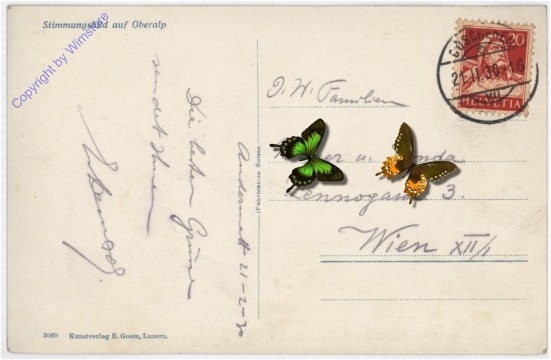 Stimmungsbild auf Oberalp
Copyright by Wimstore
Andermatt 21-2-30
Die besten Grüsse
sendet Ihnen
(Fabrication Suisse
3069 Kunstverlag E. Goetz, Luzern.
20
HELVETIA
21.II.30
J. W. Familien
u.
3.
Wien XII/1